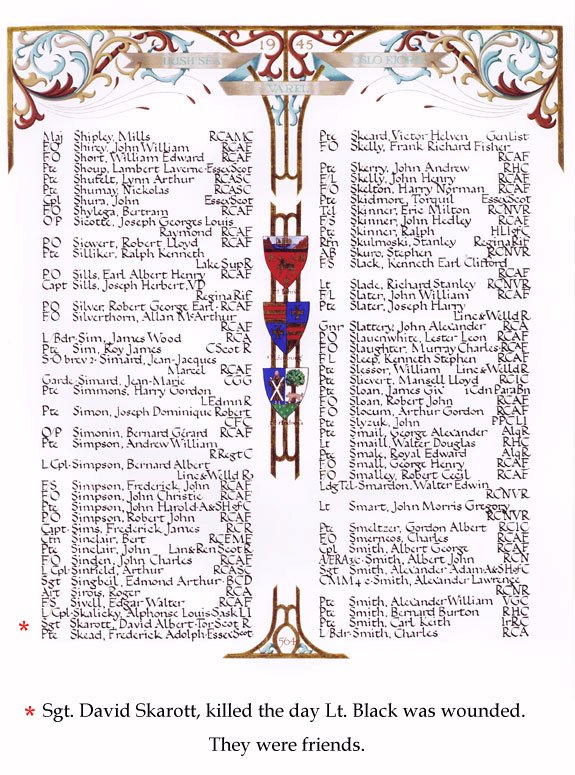 19 45
IRISH SEA
OSLO FJORD
VAREL
Maj Shipley, Mills RCAMC
FO Shirey, John William RCAF
FO Short, William Edward RCAF
Pte Shoup, Lambert Laverne·EssexScot
Pte Shufelt, Lynn Arthur RCASC
Pte Shumay, Nickolas RCASC
Cpl Shura, John EssexScot
FO Shylega, Bertram RCAF
O/P Sicotte, Joseph Georges Louis
Raymond RCAF
PO Siewert, Robert Lloyd RCAF
Pte Silliker, Ralph Kenneth
LakeSupR
PO Sills, Earl Albert Henry RCAF
Capt Sills, Joseph Herbert, VD
ReginaRif
PO Silver, Robert George Earl·RCAF
FO Silverthorn, Allan McArthur
RCAF
L/Bdr·Sim, James Wood RCA
Pte Sim, Roy James CScot R
S·O brev 2·Simard, Jean-Jacques
Marcel RCAF
Garde·Simard, Jean-Marie CGG
Pte Simmons, Harry Gordon
LEdmnR
Pte Simon, Joseph Dominique Robert
CFC
O/P Simonin, Bernard Gérard RCAF
Pte Simpson, Andrew William
RRegtC
LCpl·Simpson, Bernard Albert
Linc&WelldR
FS Simpson, Frederick, John RCAF
FO Simpson, John Christie RCAF
Pte Simpson, John Harold·A&SHofC
PO Simpson, Robert John RCAF
Capt·Sims, Frederick, James RCR
Cfn Sinclair, Bert RCEME
Pte Sinclair, John Lan&RenScotR
FO Sinden, John Charles RCAF
LCpl·Sinfield, Arthur RCASC
Sgt Singbeil, Edmond Arthur·BCD
Art Sirois, Roger RCA
FS Sivell, Edgar Walter RCAF
LCpl·Skalicky, Alphonse Louis·SaskLI
* Sgt Skarott, David Albert·TorScotR
Pte Skead, Frederick Adolph·EssexScot
Pte Skeard, Victor Helven GenList
FO Skelly, Frank Richard Fisher
RCAF
Pte Skerry, John Andrew RHC
F/L Skelly, John Henry RCAF
FO Skelton, Harry Norman RCAF
Pte Skidmore, Torquil EssexScot
Tel Skinner, Eric Milton RCNVR
FS Skinner, John Hedley RCAF
Pte Skinner, Ralph HLIofC
Rfn Skulmoski, Stanley ReginaRif
AB Skuro, Stephen RCNVR
FS Slack, Kenneth Earl Clifford
RCAF
Lt Slade, Richard Stanley RCNVR
FL Slater, John William RCAF
Pte Slater, Joseph Harry
Linc&WelldR
Gnr Slattery, John Alexander RCA
PO Slauenwhite, Lester Leon RCAF
FO Slaughter, Murray Charles·RCAF
FL Sleep, Kenneth Stephen RCAF
Pte Slessor, William Linc&WelldR
Pte Slievert, Mansell Lloyd RCIC
Pte Sloan, James Gic 1CdnParaBn
FO Sloan, Robert John RCAF
FO Slocum, Arthur Gordon RCAF
Pte Slyzuk, John PPCLI
Pte Smaill, George Alexander AlqR
Lt Smaill, Walter Douglas RHC
Pte Smale, Royal Edward AlqR
FO Small, George Henry RCAF
FO Smalley, Robert Cecil RCAF
LdgTel·Smardon, Walter Edwin
RCNVR
Lt Smart, John Morris Gregory
RCNVR
Pte Smeltzer, Gordon Albert RCIC
FO Smerneos, Charles RCAF
Cpl Smith, Albert George RCAF
Smith, Albert John RCN
Sgt Smith, Alexander Adam·A&SHofC
CMM 4c·Smith, Alexander Lawrence
RCNR
Pte Smith, Alexander William VGC
Pte Smith, Bernard Burton RHC
Pte Smith, Carl Keith IrRC
L/Bdr·Smith, Charles RCA
564
* Sgt. David Skarott, killed the day Lt. Black was wounded.
They were friends.